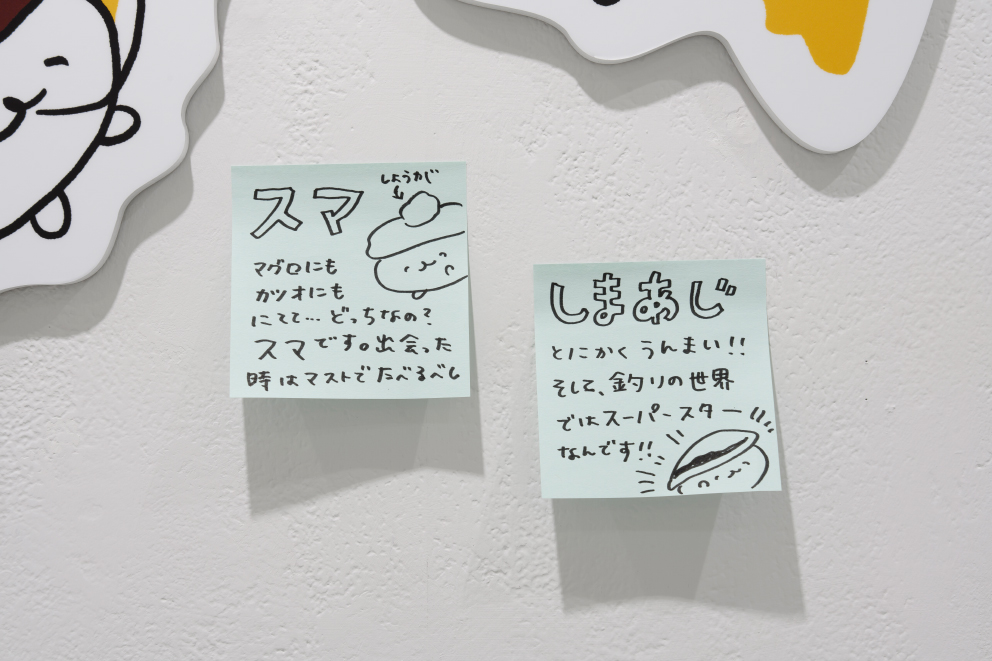 スマ
しょうが
マグロにも
カツオにも
にてて…どっちなの?
スマです。出会った
時はマストでたべるべし
しまあじ
とにかくうんまい!!
そして、釣りの世界
ではスーパースター
なんです!!